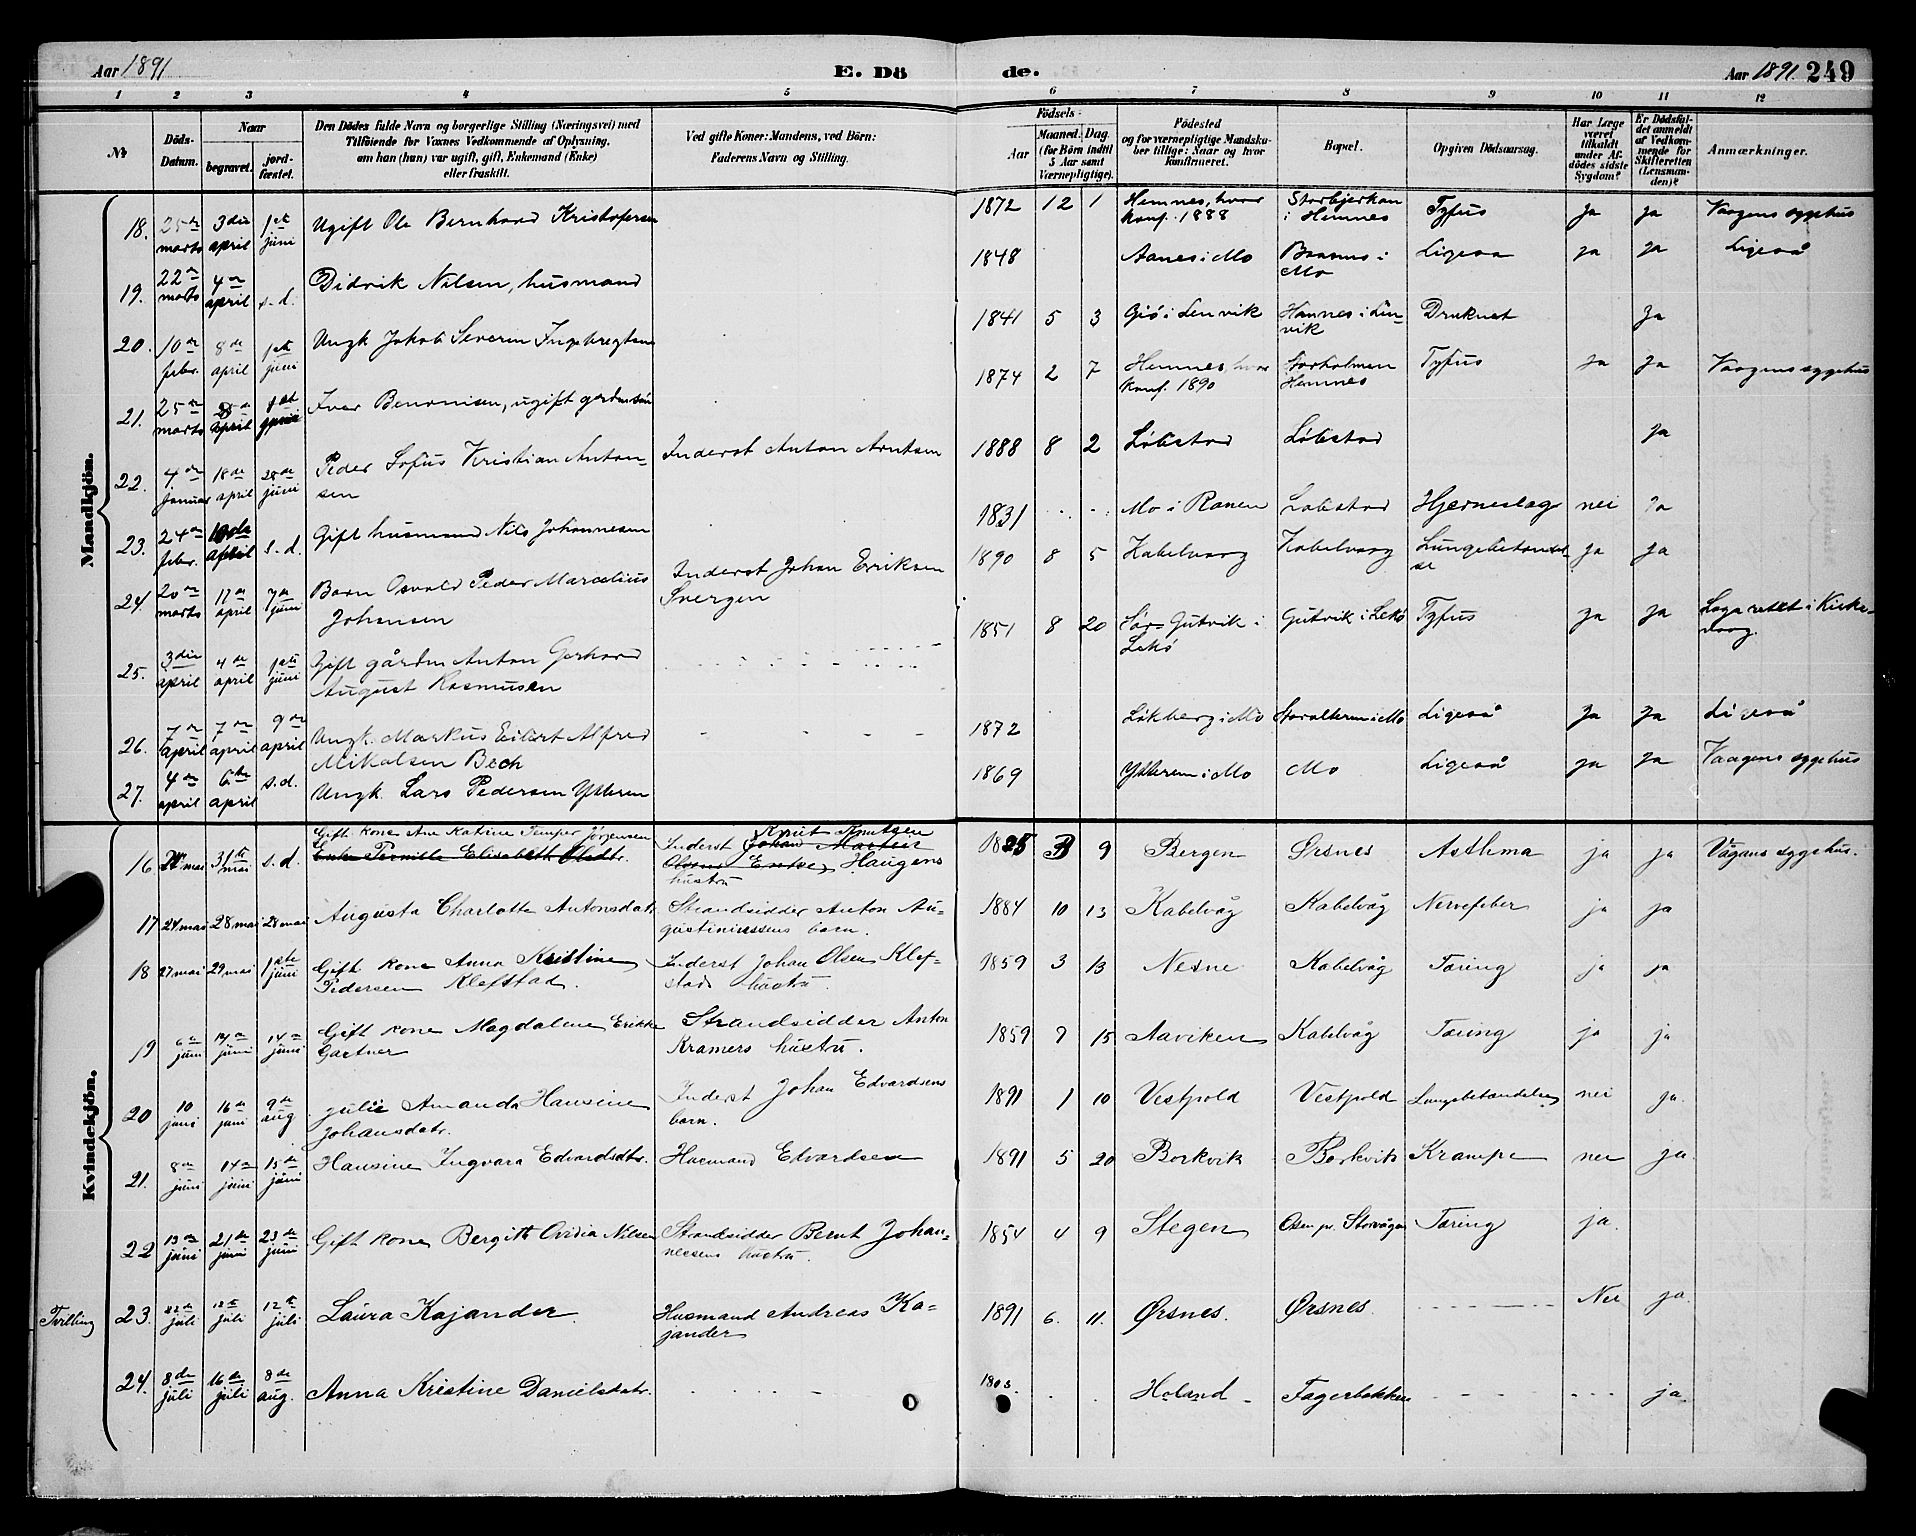 Aar 1891
E. Dö
de.
Aar 1891. 249
1 2 3 4 5 6 7 8 9 10 11 12
№
Döds-
Datum.
Naar
begravet. jord-
fæstet.
Den Dödes fulde Navn og borgerlige Stilling (Næringsvei) med
Tilföiende for Voxnes Vedkommende af Oplysning,
om han (hun) var ugift, gift, Enkemand (Enke)
eller fraskilt.
Ved gifte Koner: Mandens, ved Börn:
Faderens Navn og Stilling.
Födsels-
Aar Maaned. Dag.
(for Börn indtil
5 Aar samt
Værnepligtige).
Födested
og for værnepligtige Mandska-
ber tillige: Naar og hvor
konfirmeret.
Bopæl.
Opgiven Dödsaarsag.
Har Læge
været
tilkaldt
under Af-
dödes sidste
Sygdom?
Er Dödsfal-
det anmeldt
af Vedkom-
mende for
Skifteretten
(Lensman-
den)?
Anmærkninger.
Mandkjön.
18. 25de marts 3die april 1ste juni Ugift Ole Bernhard Kristofersen 1872 12 1 Hemnes, hvor konf. 1888 i Hemnes Tyfus ja ja Vaagens sygehus
19. 22de marts 4de april s.d. Didrik Nilsen, husmand 1848 Aanes i Mo i Mo Ligesaa ja ja Ligeså
20. 10de febr. 8de april 1ste juni Ungk Jakob Severin Ingebregtsen 1841 5 3 Giö i Lenvik Hannes i Lenvik Druknet Ja
21. 25de marts april 1ste juni Iver Benonisen, ugift 1874 2 7 Hemnes, hvor konf. 1890 Storholmen Hemnes Tyfus ja ja Vaagens sygehus
22. 4de januar 18de april 28de juni Peder Sofus Kristian Anton-
sen Inderst Anton Arntsen 1888 8 2 Löbstad Löbstad ja
23. 24de febr. april s.d. Gift husmand Nils Johannesen 1831 Mo i Ranen Löbstad Hjerneslag nei Ja
24. 20de marts 17de april 7de juni Barn Osvald Peder Marcelius
Johansen Inderst Johan Eriksen
Svergen 1890 8 5 Kabelvaag Kabelvaag Lungebetændel-
se ja ja
25. 3die april 4de april 1ste juni Gift gårdm Anton Gerhard
August Rasmusen 1851 8 20 Sör-Gutvik i
Lekö Gutvik i Lekö Tyfus ja ja Lazarettet i Kirke-
vaag.
26. 7de april 7de april 9de april Ungk. Markus Eilert Alfred
Mikalsen Bech 1872 Lökberg i Mo Storalteren i Mo Ligeså ja ja Ligeså
27. 4de april 6te april s.d. Ungk. Lars Pedersen Ytteren 1869 Ytteren i Mo Mo Ligeså ja ja Vaagens sygehus
Kvindekjön.
16 mai 31te mai s.d. Gift kone Ane Katrine Temper Jörgensen
Enke Pernille Elisabeth Olsdtr. Inderst Knut Knutsen
Johan Martin
Enke Haugens
hustru 9 Bergen Örsnes Asthma ja ja Vågans sygehus.
17 24 mai 28 mai 28 mai Augusta Charlotte Antonsdatr Strandsidder Anton Au-
gustiniussens barn. 1884 10 13 Kabelvåg Kabelvåg Nervefeber ja ja
18 27 mai 29 mai 1ste juni Gift kone Anna Kristine
Pedersen Klefstad. Inderst Johan Olsen Klef-
stads hustru. 1859 3 13 Nesne Kabelvåg Tæring ja ja
19 6te juni 14de juni 14de juni Gift kone Magdalene Erikke
Gartner Strandsidder Anton
Kramers hustru. 1859 7 15 Aaviken Kabelvåg Tæring ja ja
20 10 juni 16de juni 9de aug Julie Amanda Hansine
Johansdatr. Inderst Johan Edvardsens
barn. 1891 1 10 Vestpold Vestpold Lungebetændelse nei ja.
21. 8de juni 14de juni 15de juni Hansine Ingvara Edvardsdtr. Husmand Edvardsen 1891 5 20 Borkvik Borkvik Krampe nei ja.
22 13de juni 21de juni 23de juni Gift kone Bergitte Ovidia Nilsen Strandsidder Bernt Johan-
nessens hustru 1854 4 9 Stegen Osen pr. Storvågan Tæring ja.
Tvilling 23. juli 12te juli 12te juli Laura Kajander. Husmand Andreas Ka-
jander 1891 6. 11. Ørsnes. Ørsnes. Nei ja.
24. 8de juli 16de juli 8de aug. Anna Kristine Danielsdatr. 1803. Holand Fagerbakken ja